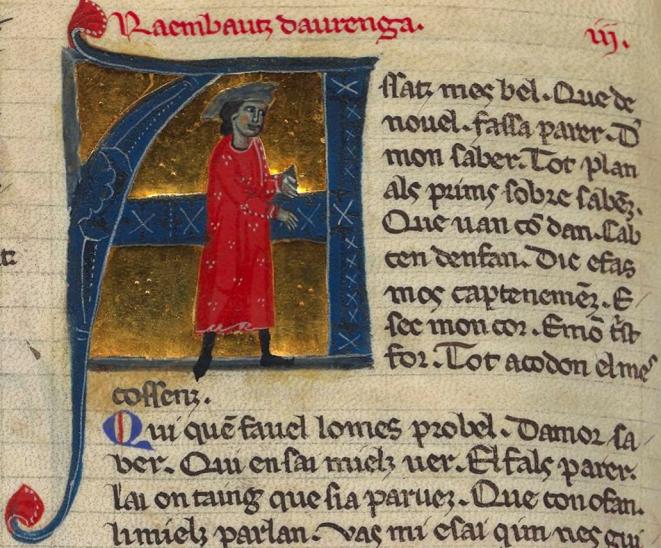 Raembautz daurenga. iij.
ssatz mes bel. Que de
nouel. fassa parer. D'
mon saber. Tot plan
als prims sobre sabēz.
Que uan cō dan. Cab
cen denfan. Dic e fas
mos captenemēz. E
sec mon cor. E mō
for. Tot acodon el mes
cossenz.
Qui quē fauel lomes probel. Damor sa
ber. Qui en sai mielz uer. El fals parer.
lai on taing que sia paruez. Que con ofan.
li mielz parlan. Vas mi e sai qim nes gui